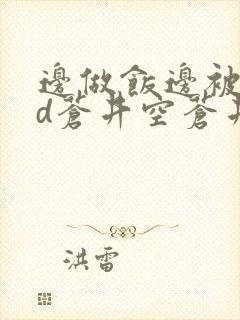 邊做飯邊被
d蒼井空蒼井
洪雷